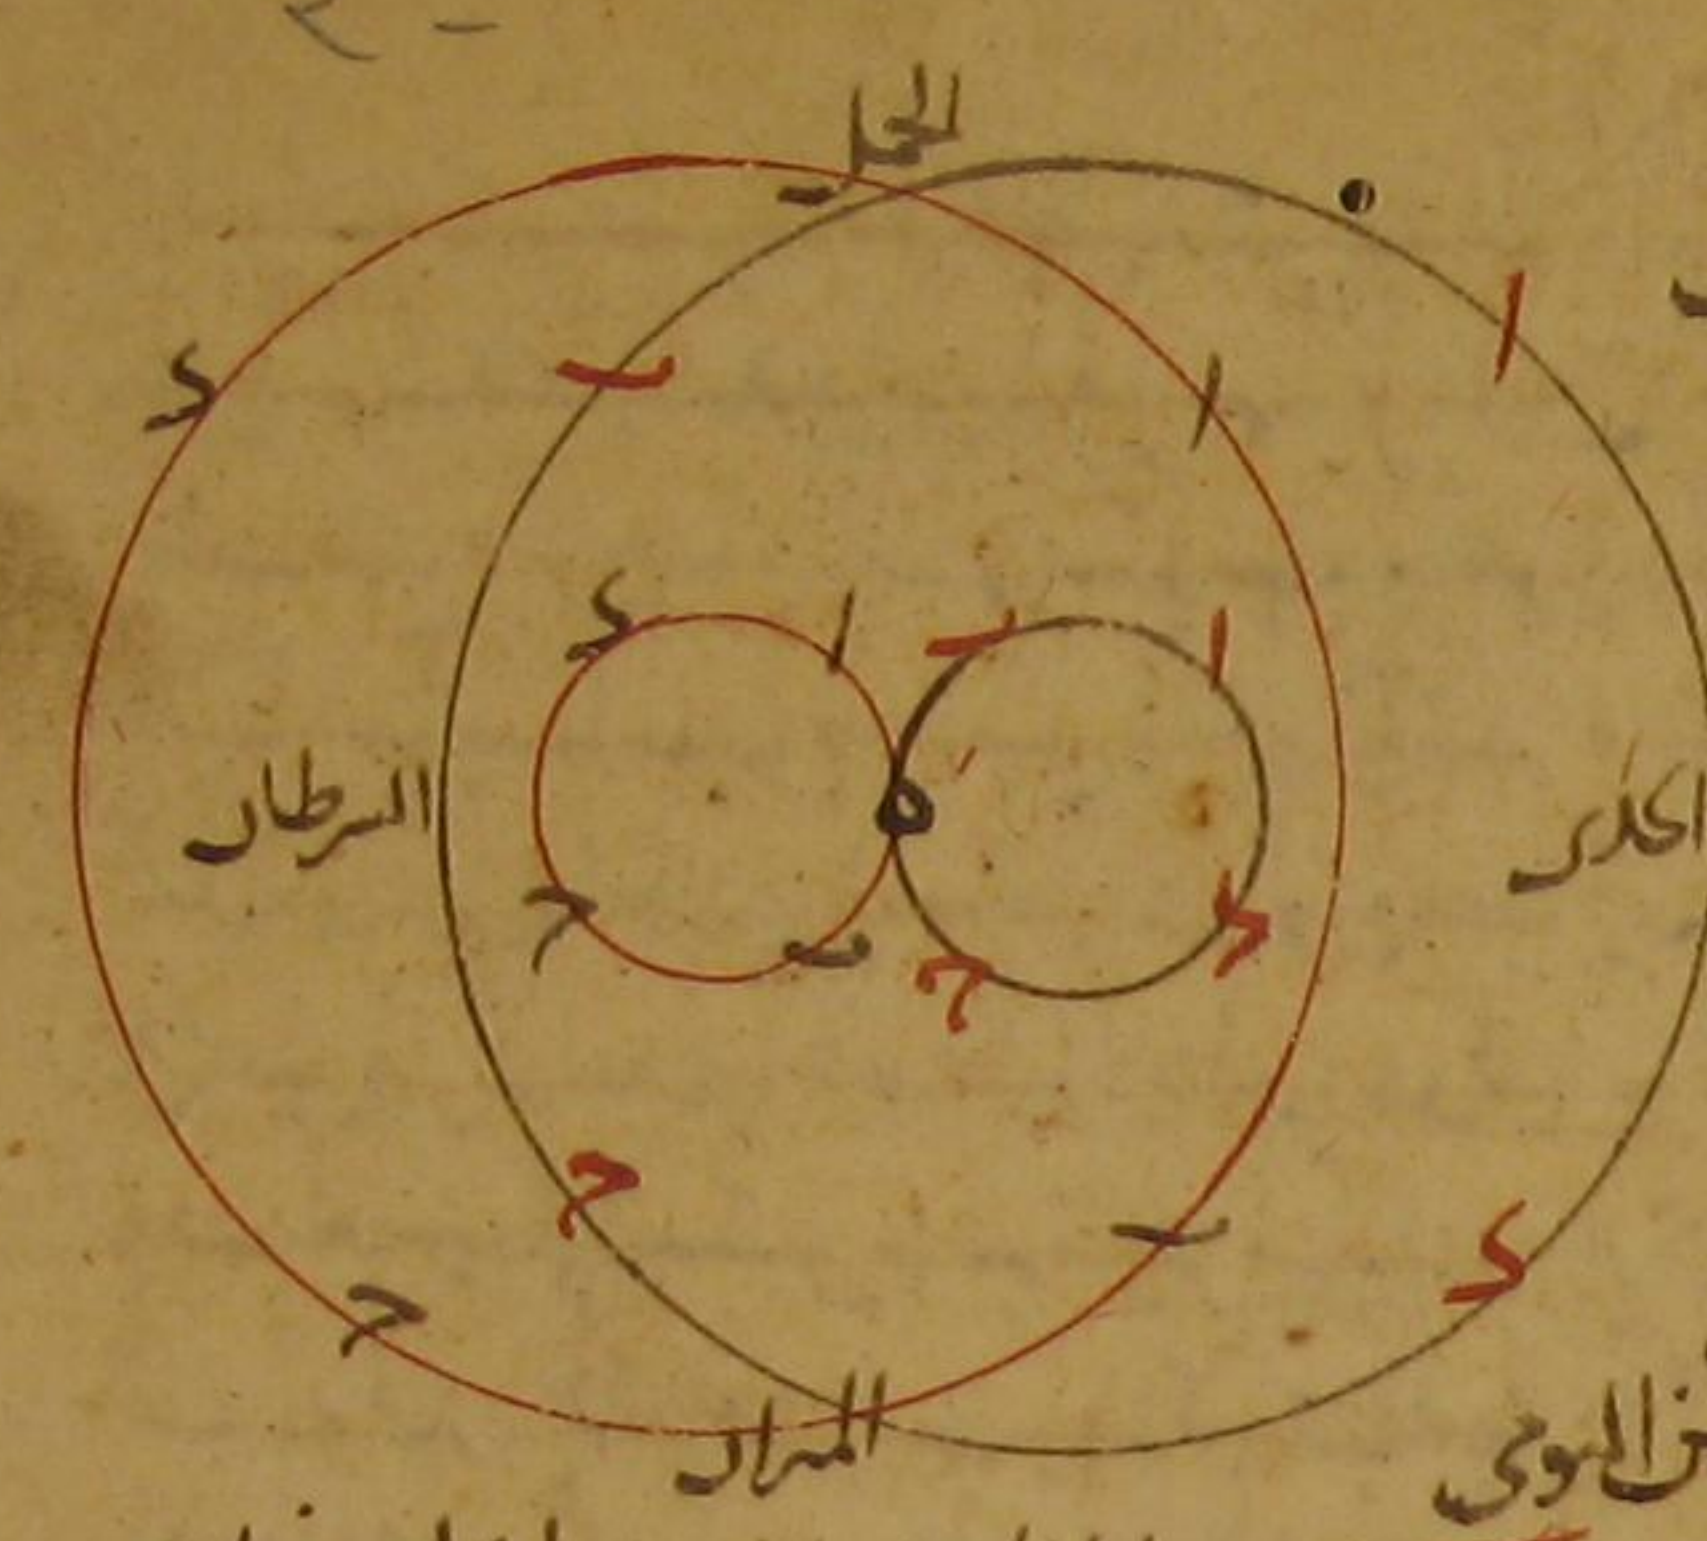 الحمل
ا
د
ب
ا
د
ا
ب
ا
ه
السرطان
الجدى
ح
ب
ح
د
ح
ب
د
ح
الميزان
اليومى